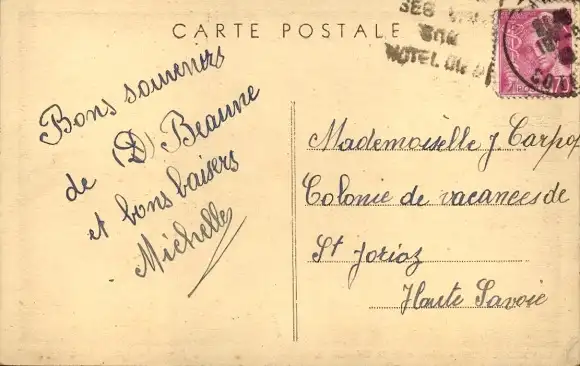 CARTE POSTALE
SES VINS
SON
HOTEL DIEU
Bons souvenirs
de (D) Beaune
et bons baisers
Michelle
Mademoiselle J. Carpo
Colonie de vacances de
St Jorioz
Haute Savoie